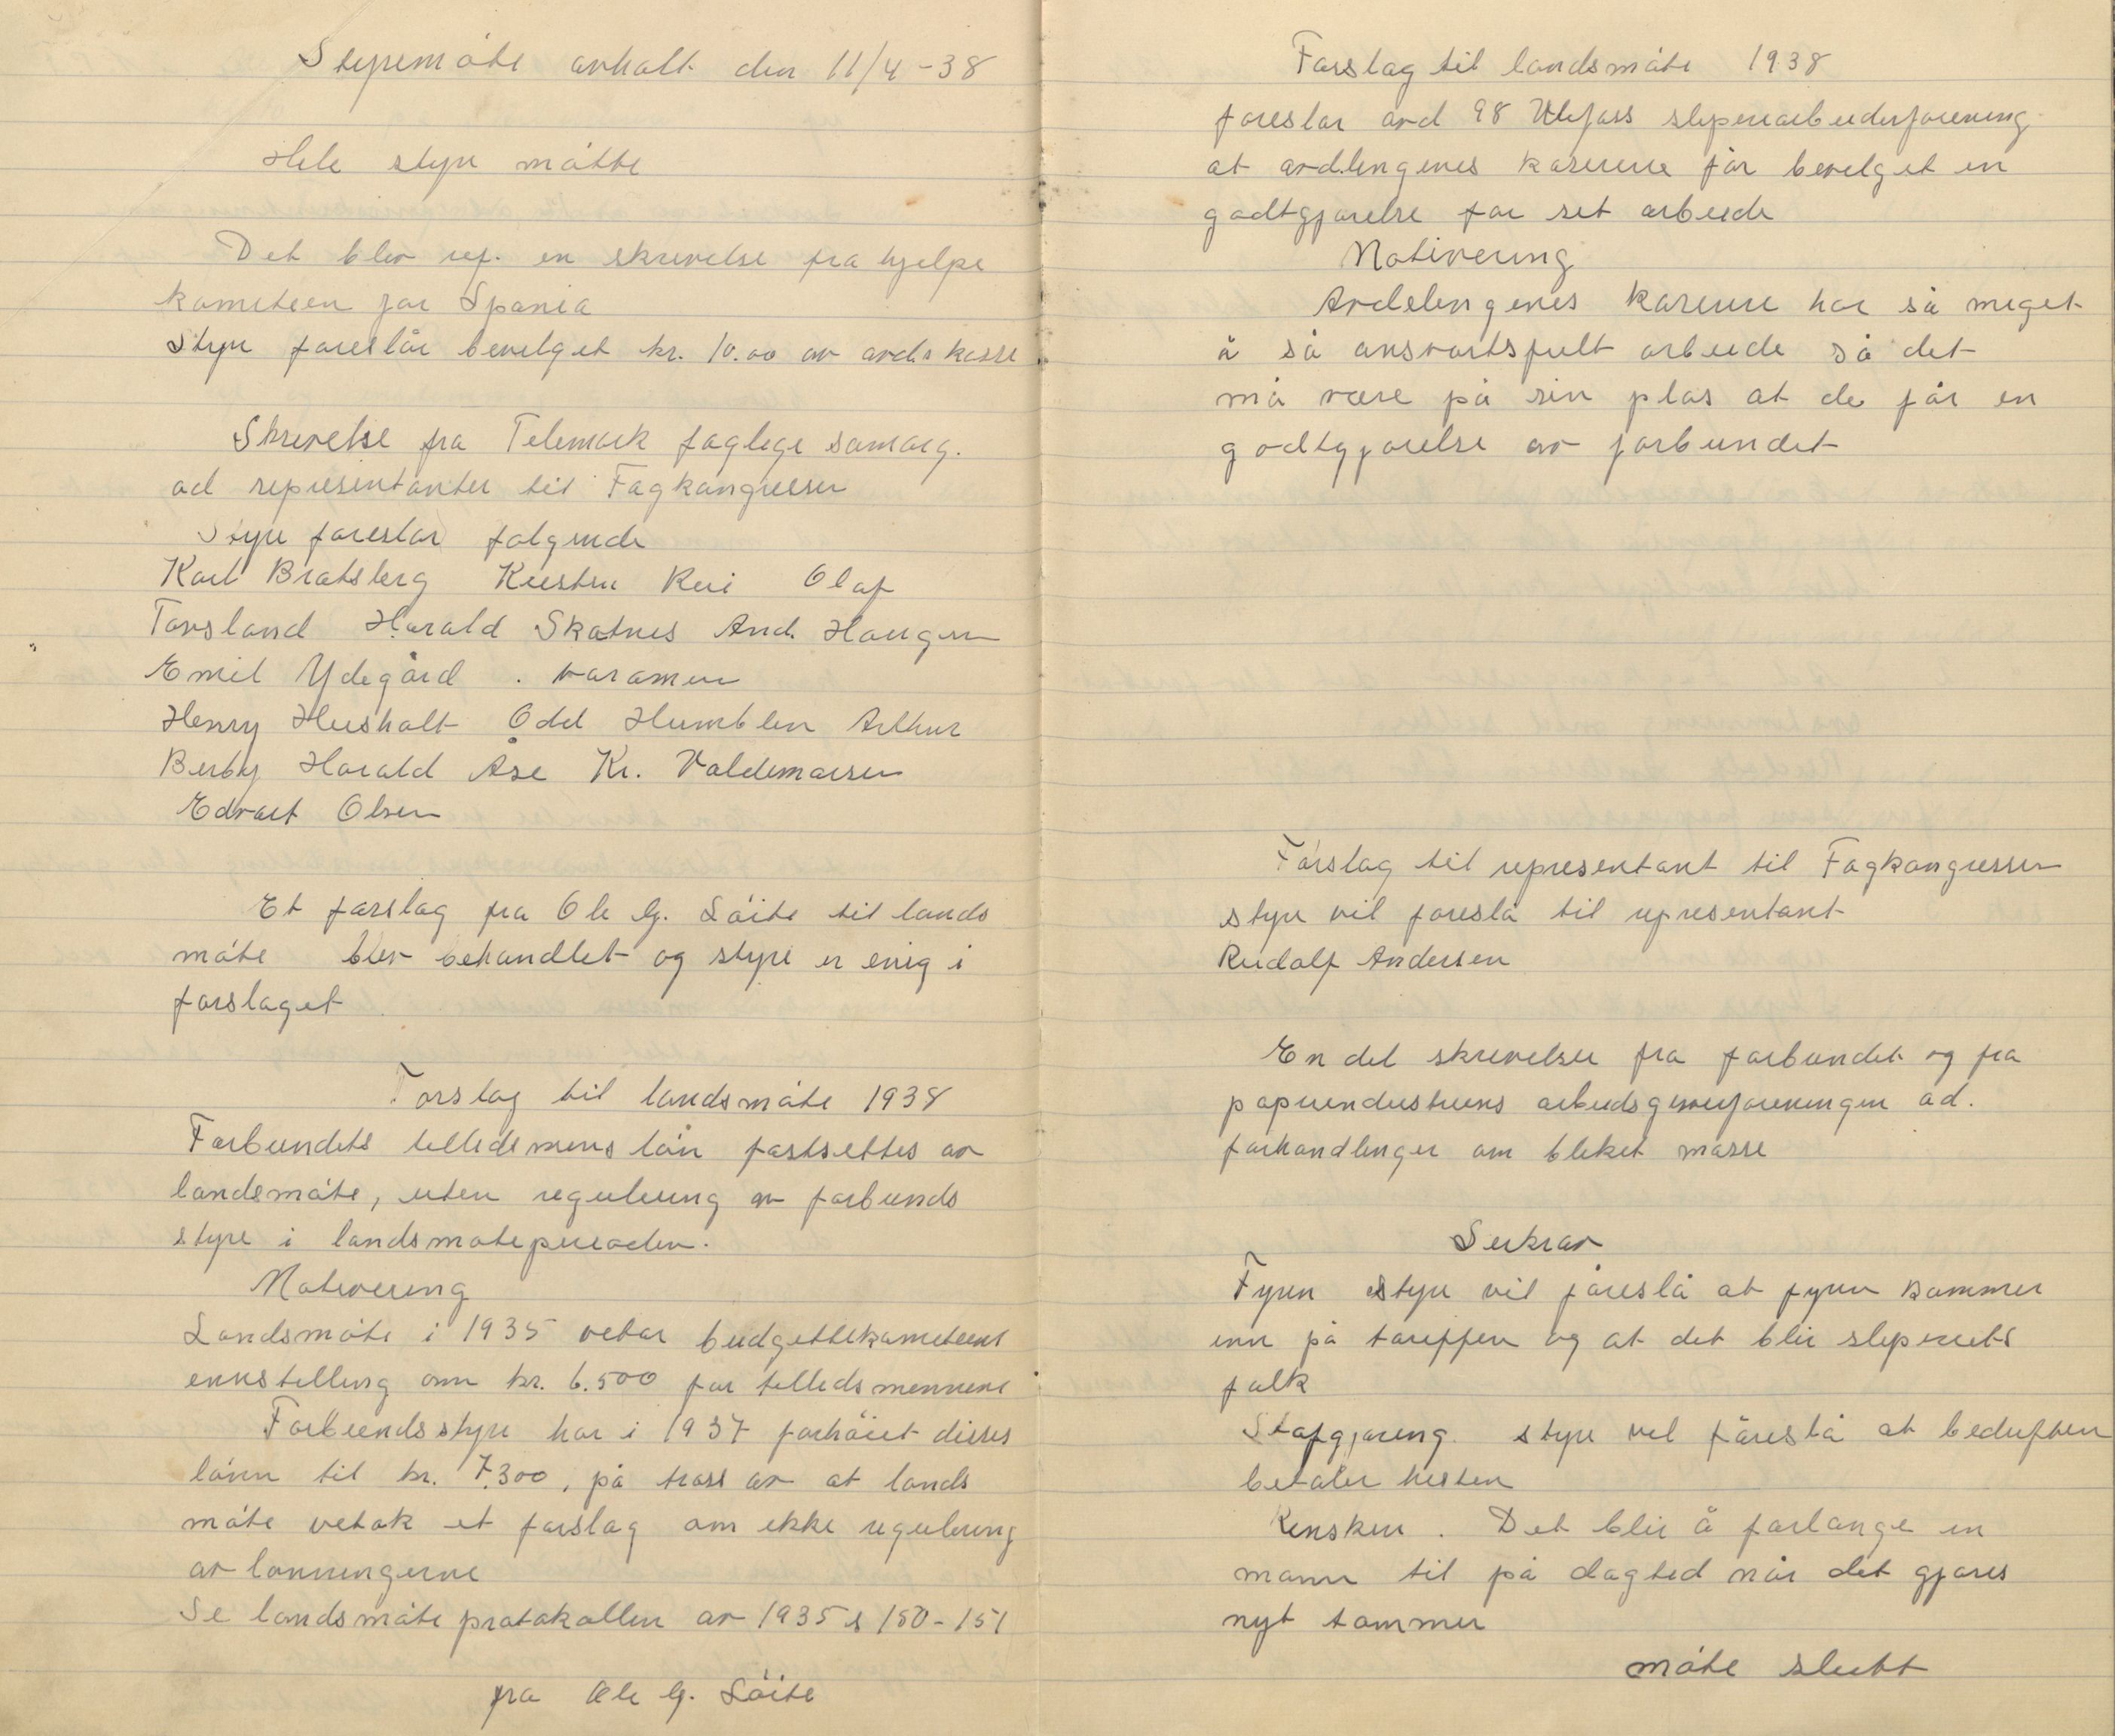 Styremöte avholt den 11/4-38
Hele styre mötte
Det blev ref. en skrivelse fra hjelpe
komiteen for Spania
Styre foreslår bevilget kr. 10.00 av avds kasse
Skrivelse fra Telemark faglige samorg.
ad representanter til Fagkongressen
Styre foreslar følgende
Karl Bratsberg Kristen Rui Olaf
Tovsland Harald Skotnes And. Haugen
Emil Ydegård . varamen
Henry Husholt Odd Humblen Arthur
Berby Harald Åse Kr. Valdemarsen
Edvart Olsen
Et forslag fra Ole G. Löite til lands
möte blev behandlet og styre er enig i
forslaget
Forslag til landsmöte 1938
Forbundets tillidsmens lön fastsettes av
landsmöte, uten regulering av forbunds
styre i landsmöteperioden.
Motivering
Landsmöte i 1935 vetok budgettkomiteens
innstilling om kr. 6.500 for tillidsmennene
Forbundsstyre har i 1937 forhöiet disses
lönn til kr. 7.300, på tross av at lands
möte vetok et forslag om ikke regulering
av lönningerne
Se landsmöte protokollen av 1935 s 150-151
fra Ole G. Löite
Forslag til landsmöte 1938
foreslar avd 98 Ulefoss sliperiarbeiderforening
at avdlingenes kaserere får bevilget en
godtgjørelse for sit arbeide
Motivering
Avdelingenes kaserere har så meget
å så ansvartsfult arbeide så det
må være på sin plas at de får en
godtgjørelse av forbundet
Forslag til representant til Fagkongressen
styre vil foreslå til representant
Rudolf Andersen
En del skrivelser fra forbundet og fra
papirindustriens arbeidsgiverforeningen ad.
forhandlinger om bleket masse
Serkrav
Fyren styre vil foreslå at fyren kommer
inn på tariffen og at det blir sliperiets
folk
Stafgjøring. styre vil foreslå at bedriften
betaler hesten
Rensken . Det blir å forlange en
mann til på dagtid når det gjøres
nyt tømmer
möte slutt